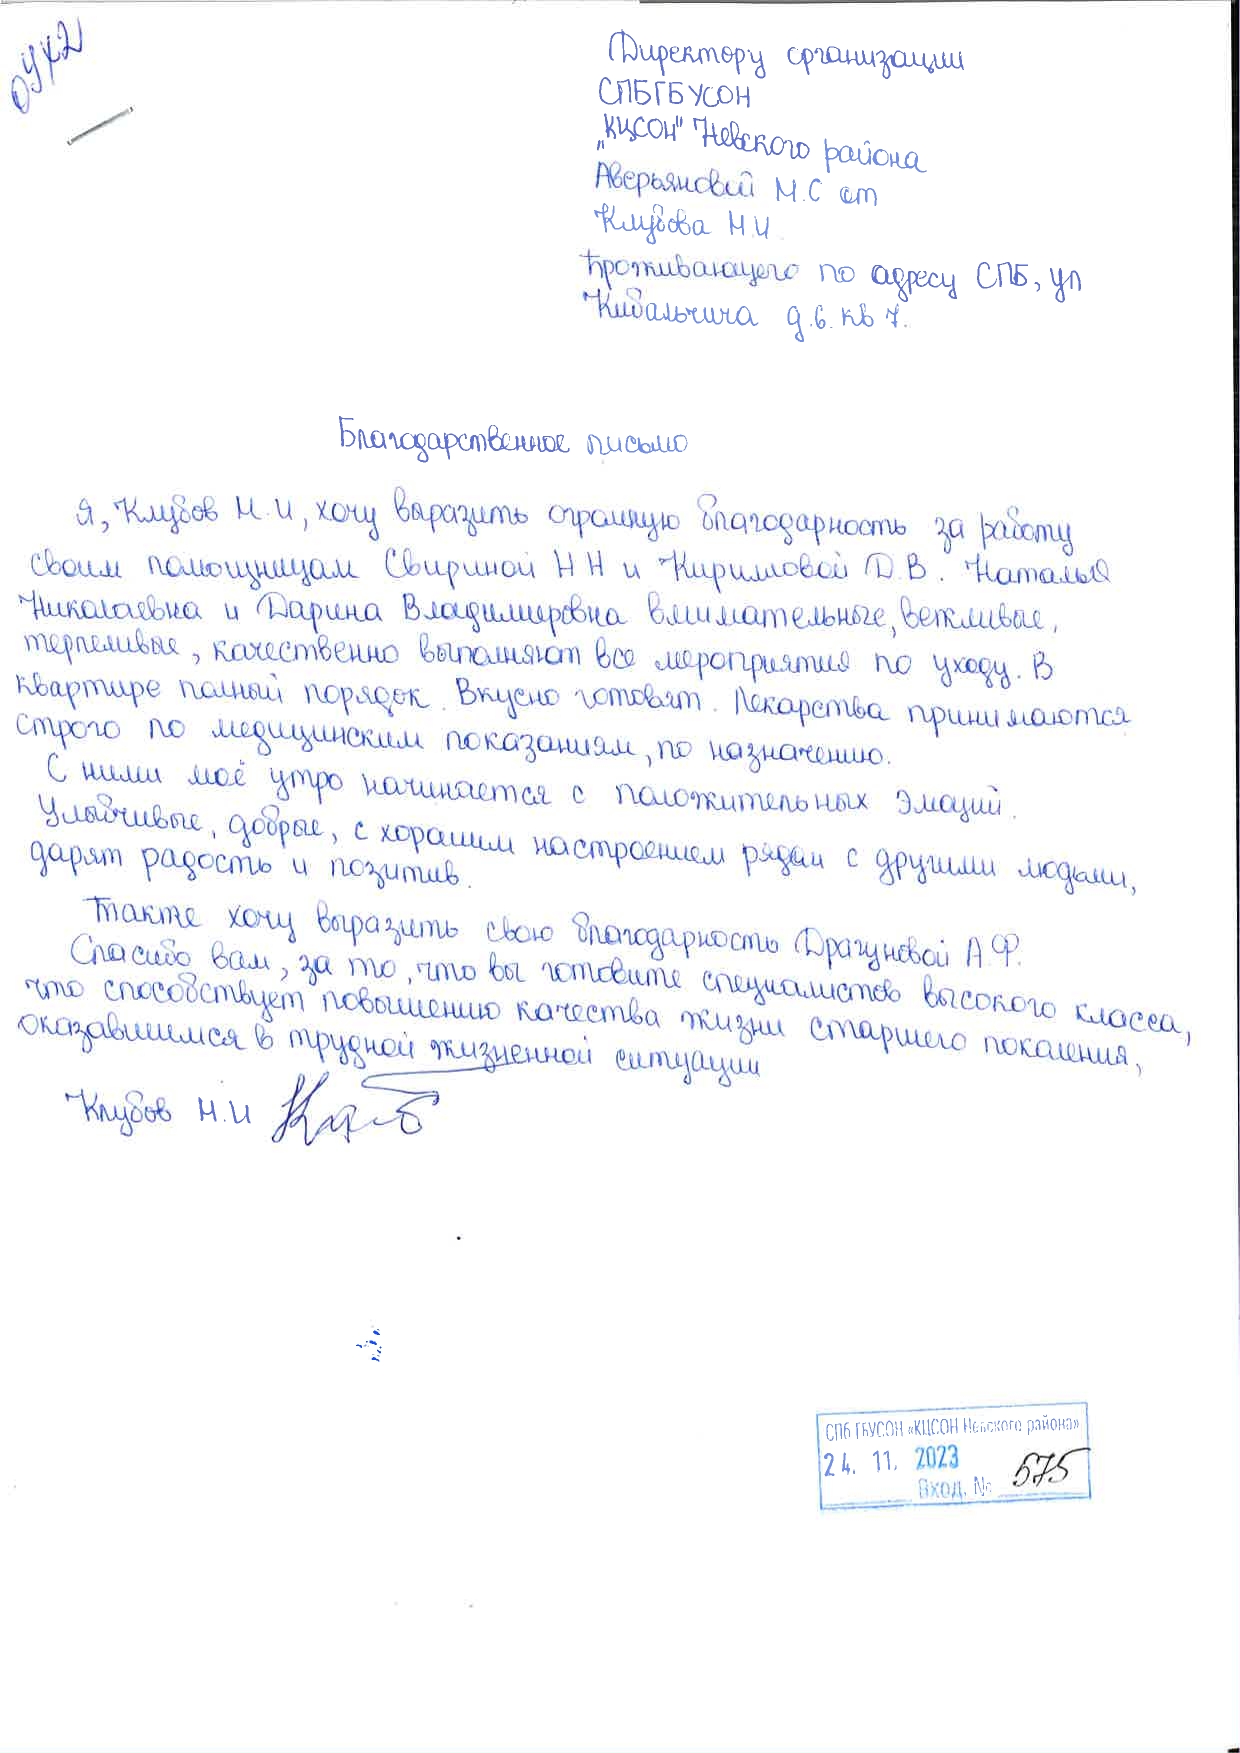 ОУХ2
Директору организации
СПБГБУСОН
„КЦСОН" Невского района
Аверьяновой М.С от
Клубова Н.И
Проживающего по адресу СПБ, ул
Кибальчича д.6. кв 7.
Благодарственное письмо
Я, Клубов Н.И, хочу выразить огромную благодарность за работу
своим помощницам Свириной Н Н и Кирилловой Д.В. Наталья
Николаевна и Дарина Владимировна внимательные, вежливые,
терпеливые, качественно выполняют все мероприятия по уходу. В
квартире полный порядок. Вкусно готовят. Лекарства принимаются
строго по медицинским показаниям, по назначению.
С ними моё утро начинается с положительных эмоций.
Улыбчивые, добрые, с хорошим настроением рядом с другими людьми,
дарят радость и позитив.
Также хочу выразить свою благодарность Драгуновой А.Ф.
Спасибо вам, за то, что вы готовите специалистов высокого класса,
что способствует повышению качества жизни старшего поколения,
оказавшимся в трудной жизненной ситуации
Клубов Н.И
СПб ГБУСОН «КЦСОН Невского района»
24. 11. 2023
Вход. № 575